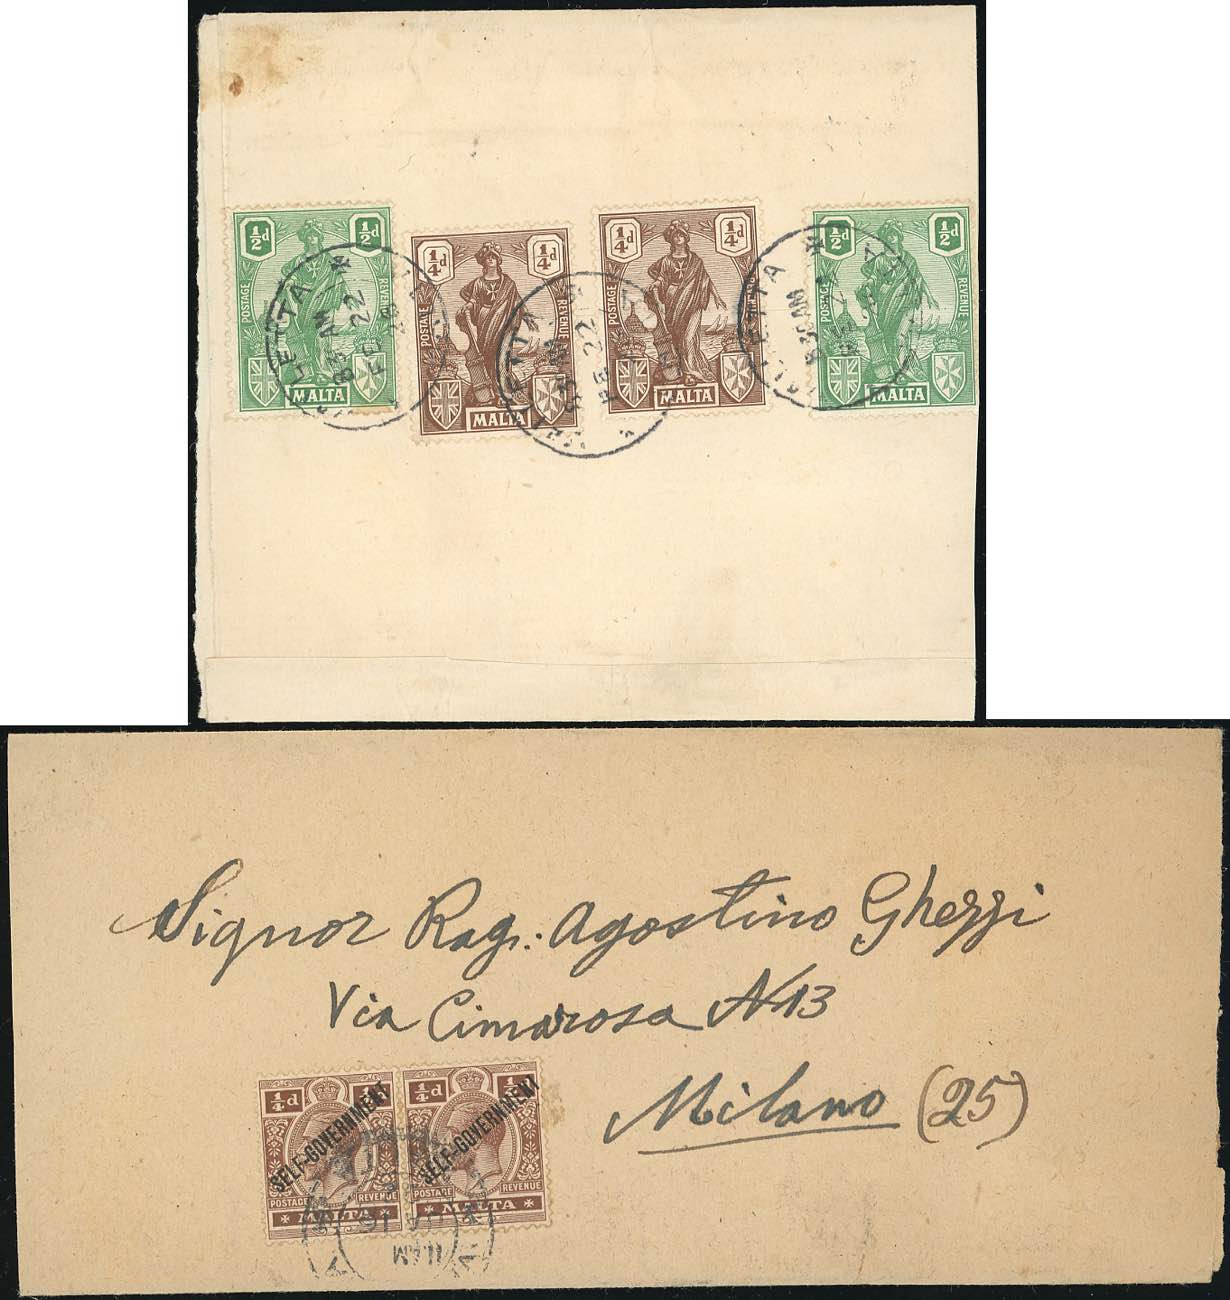 ½d ½d
POSTAGE REVENUE
MALTA
¼d ¼d
POSTAGE REVENUE
MALTA
¼d ¼d
POSTAGE REVENUE
MALTA
½d ½d
POSTAGE REVENUE
MALTA
VALLETTA
FE 22
VALLETTA
AM
FE 22
VALLETTA
AM
Signor Rag. Agostino Ghezzi
Via Cimarosa N 13
Milano (25)
¼d
SELF-GOVERNMENT
POSTAGE REVENUE
MALTA
¼d
SELF-GOVERNMENT
POSTAGE REVENUE
MALTA
11 AM